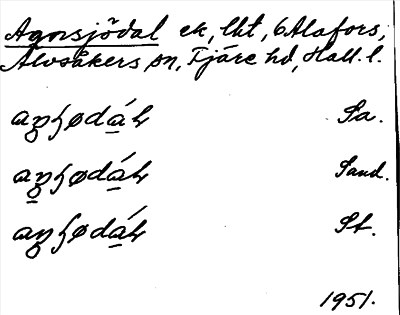 Agnsjödal ek, lht, 6 Alafors,
Älvsåkers sn, Fjäre hd, Hall. l.
aŋʃødáɫ Sa.
aŋʃødáɫ Sand.
aŋʃødáɫ St.
1951.